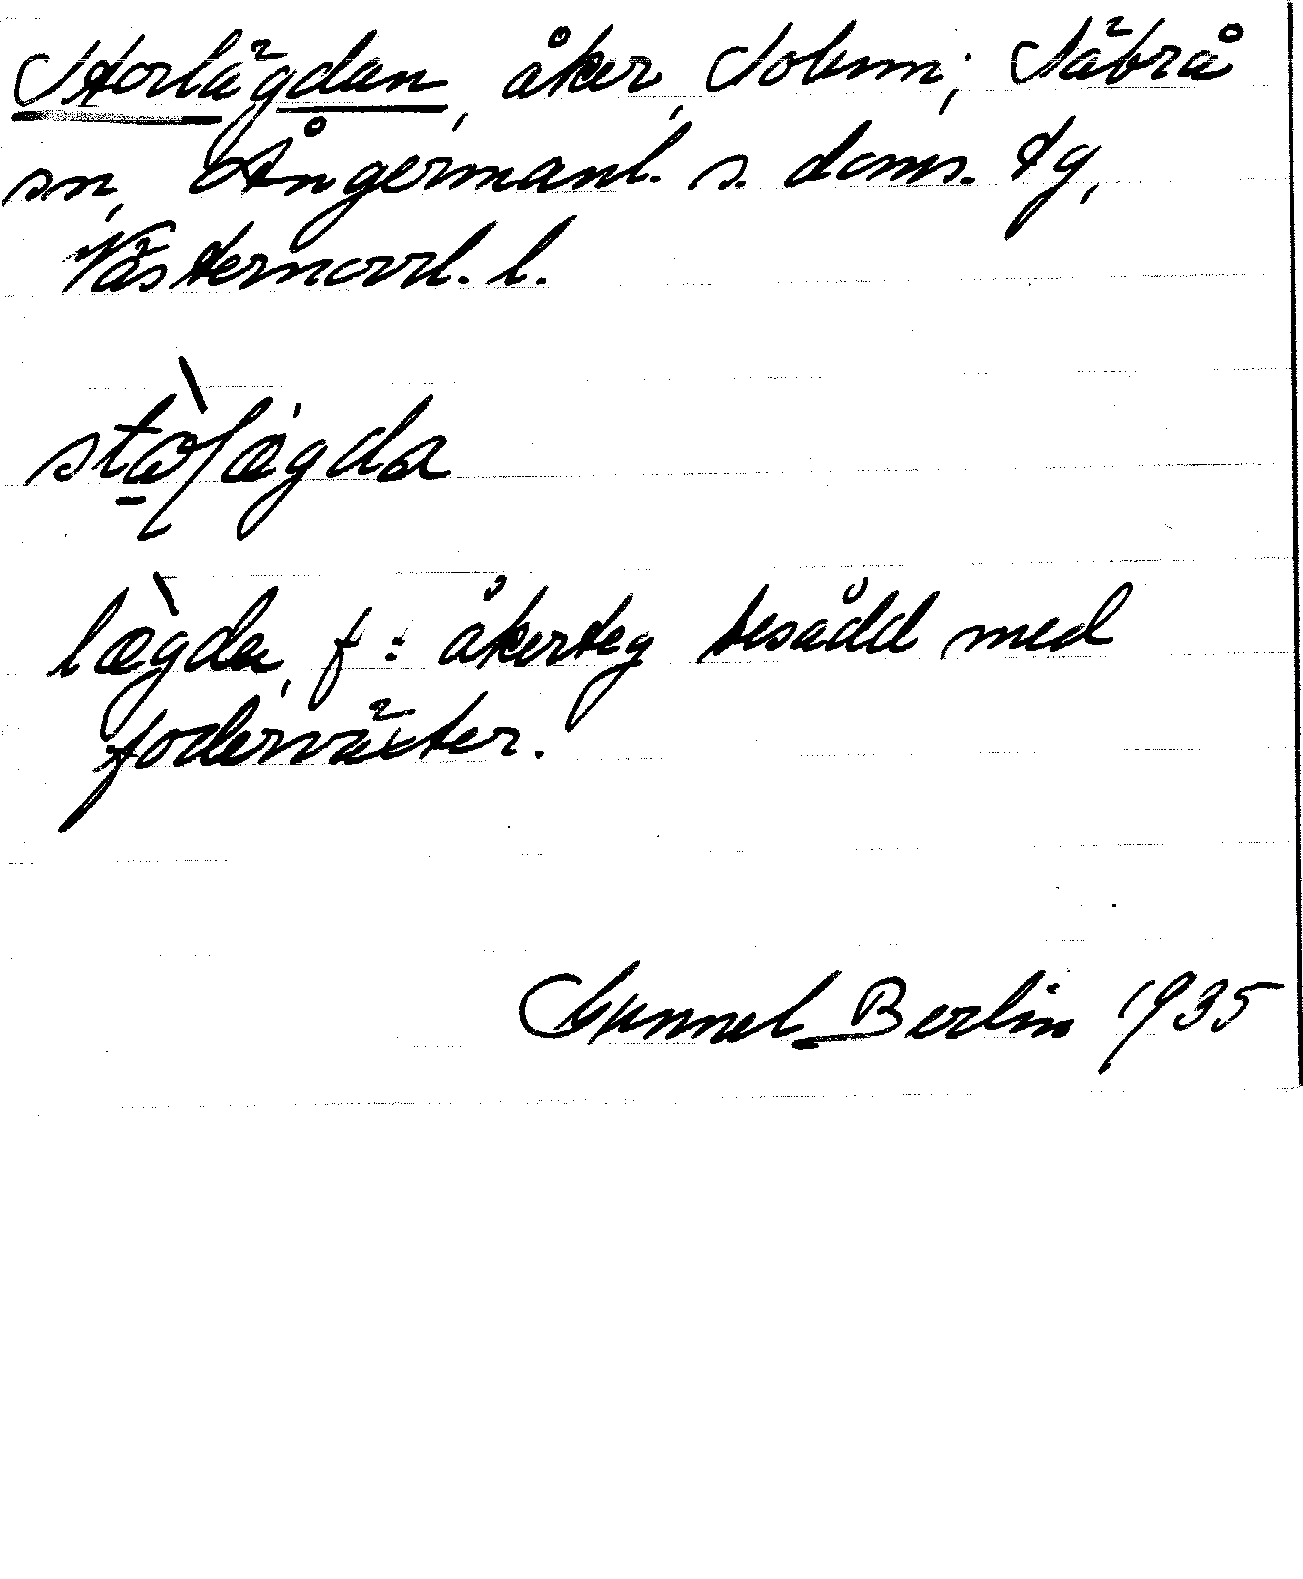 Storlägdan, åker, Solum; Säbrå
sn, Ångermanl. s. doms. tg,
Västernorrl. l.
lægda, f: åkerteg besådd med
foderväxter.
Gunnel Berlin 1935